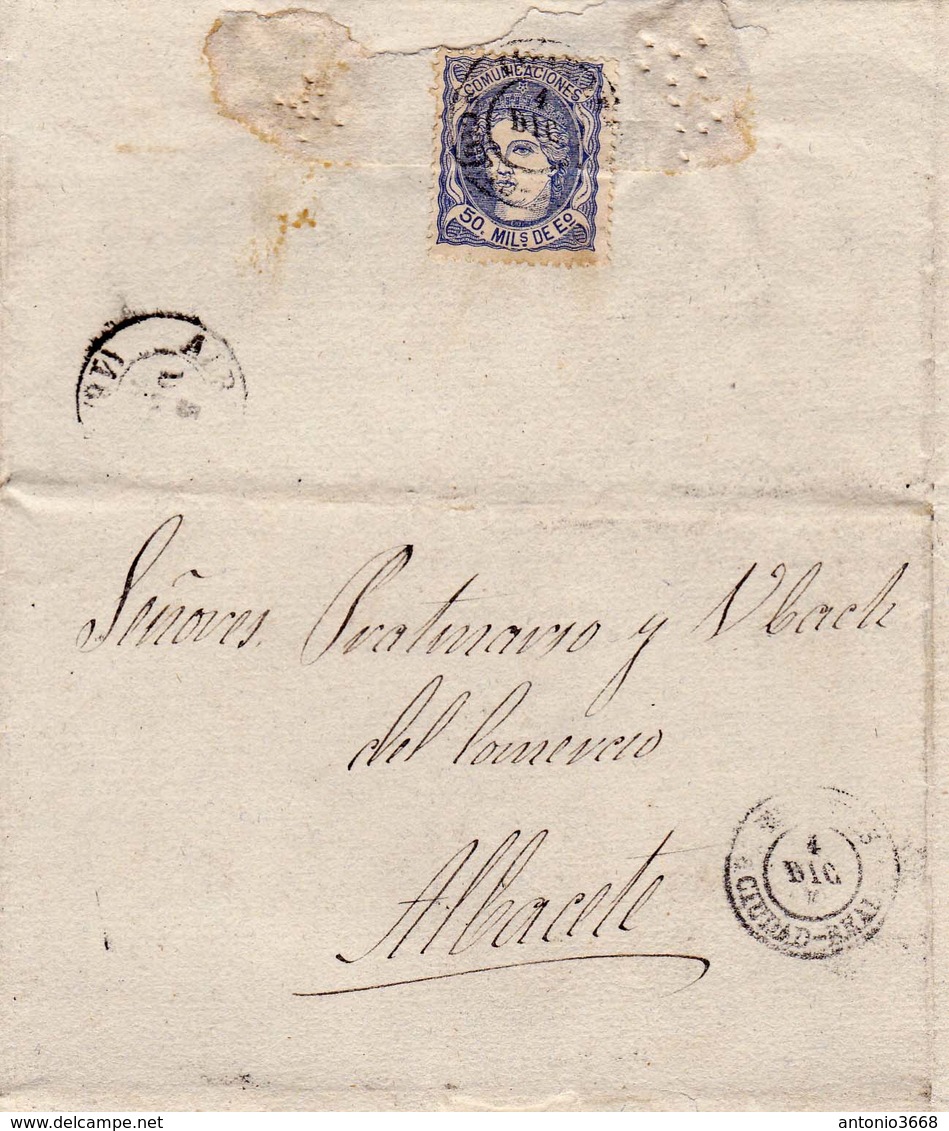 COMUNICACIONES
4
DIC
50. MILS. DE EO
Señores. Pratmarso y Vbach
del Comercio
Albacete
4
DIC
CIUDAD-REAL
antonio3668